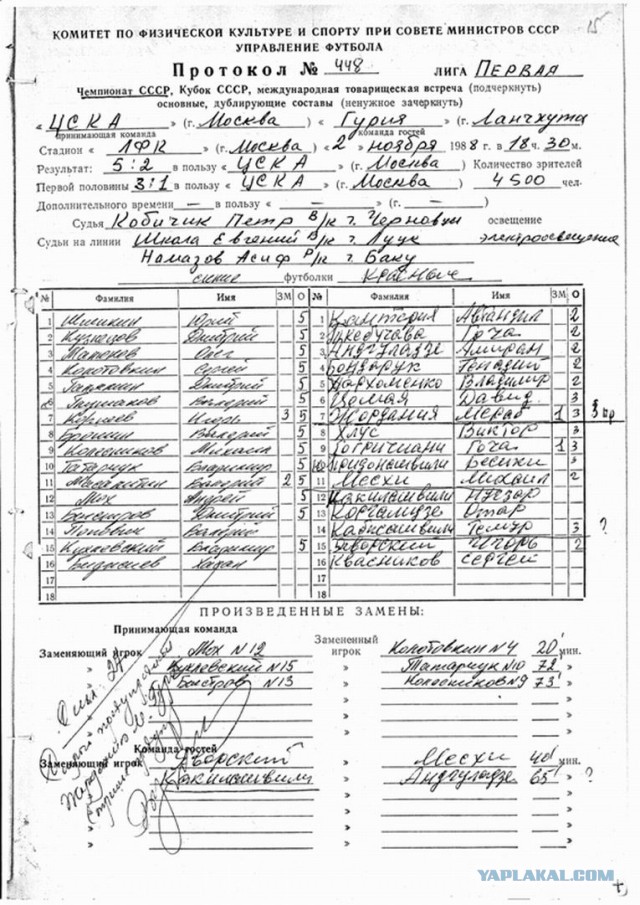 15
КОМИТЕТ ПО ФИЗИЧЕСКОЙ КУЛЬТУРЕ И СПОРТУ ПРИ СОВЕТЕ МИНИСТРОВ СССР
УПРАВЛЕНИЕ ФУТБОЛА
Протокол № 448 ЛИГА Первая
Чемпионат СССР, Кубок СССР, международная товарищеская встреча (подчеркнуть)
основные, дублирующие составы (ненужное зачеркнуть)
«ЦСКА» (г. Москва) «Гурия» (г. Ланчхути)
принимающая команда команда гостей
Стадион «ЛФК» (г. Москва) «2» ноября 1988 г. в 18 ч. 30 м.
Результат: 5:2 в пользу «ЦСКА» (г. Москва) Количество зрителей
Первой половины 3:1 в пользу «ЦСКА» (г. Москва) 4500 чел.
Дополнительного времени — в пользу « — » (г. — )
Судья Кобичик Петр в/к г. Черновцы освещение
Судьи на линии Школа Евгений в/к г. Луцк электроосвещение
Намазов Асиф р/к г. Баку
синие футболки красные
№ Фамилия Имя ЗМ О № Фамилия Имя ЗМ О
1 Шишкин Юрий 5 1 Кантария Автандил 2
2 Кузнецов Дмитрий 5 2 Гоча 2
3 Олег 5 3 Андгуладзе Амиран 2
4 Колотовкин Сергей 5 4 Бондарук Геннадий 2
5 Дмитрий 5 5 Пархоменко Владимир 2
6 Валерий 5 6 Цомая Давид 3
7 Корнеев Игорь 3 5 7 Жордания Мераб 1 3
8 Брошин Валерий 5 8 Хлус Виктор 3
9 Колесников Михаил 5 9 Гогричиани Гоча 1 3
10 Татарчук Владимир 5 10 Придонашвили Бесики 3
11 Масалитин Валерий 2 5 11 Месхи Михаил 2
12 Мох Андрей 12 Какилашвили Нугзар
13 Быстров Дмитрий 5 13 Коргалидзе Отар
14 Валерий 14 Темур 3
15 Владимир 5 15 Яворский Игорь 2
16 16 Квасников Сергей
17 17
18 18
?
ПРОИЗВЕДЕННЫЕ ЗАМЕНЫ:
Принимающая команда Замененный игрок
Заменяющий игрок Мох N 12 Колотовкин N 4 20' мин.
N 15 Татарчук N 10 72' »
Быстров N 13 Колесников N 9 73' »
Команда гостей
Заменяющий игрок Яворский » Месхи 40' мин.
Какилашвили » Андгуладзе 65' » ?
YAPLAKAL.COM